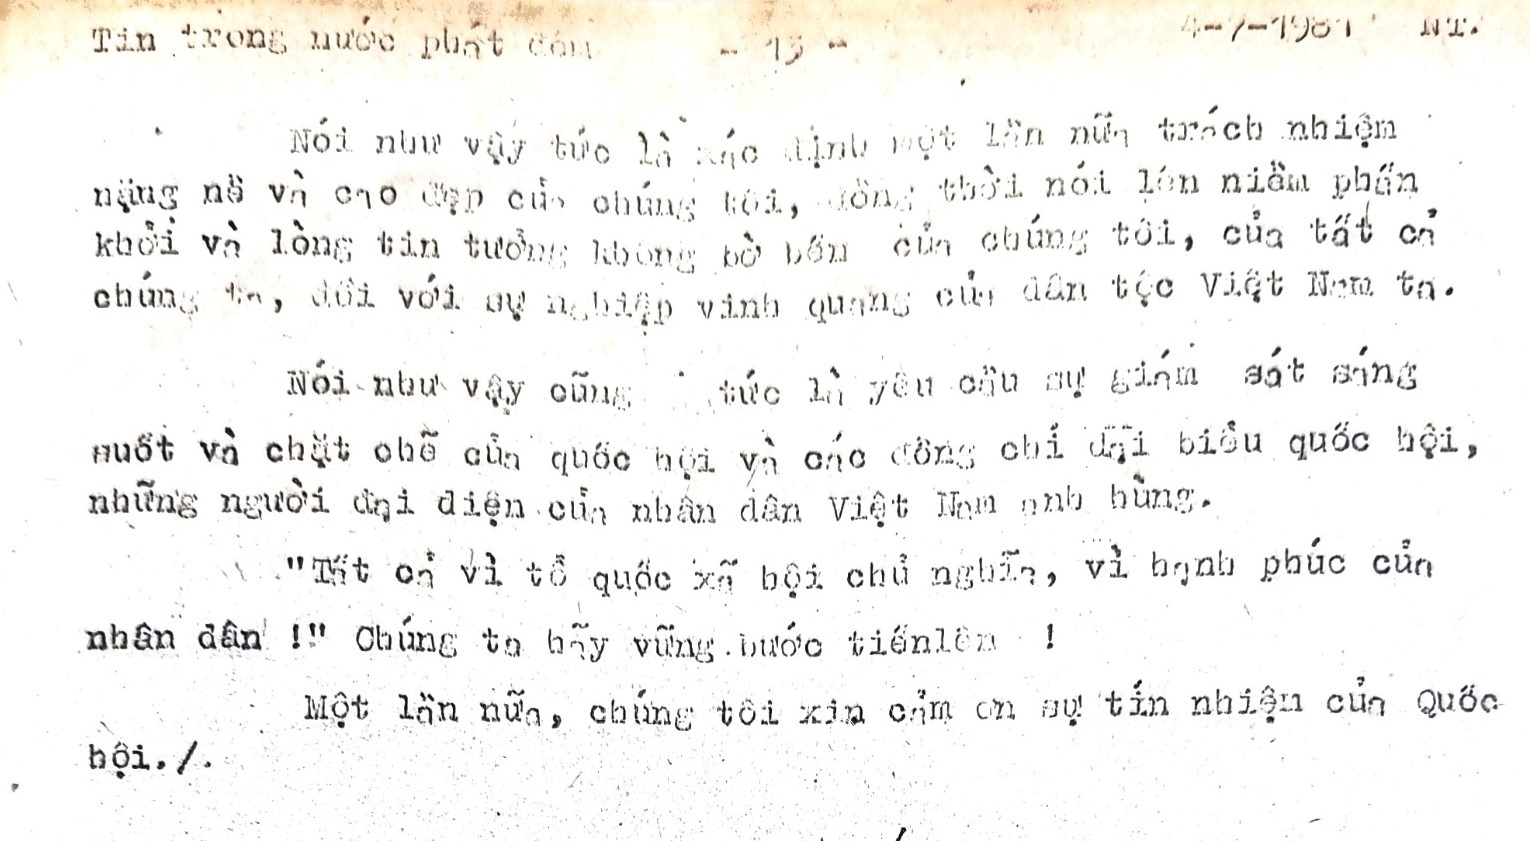 Tin trong nước phát đêm - 15 - 4-7-1981 NT.
Nói như vậy tức là xác định một lần nữa trách nhiệm
nặng nề và cao đẹp của chúng tôi, đồng thời nói lên niềm phấn
khởi và lòng tin tưởng không bờ bến của chúng tôi, của tất cả
chúng ta, đối với sự nghiệp vinh quang của dân tộc Việt Nam ta.
Nói như vậy cũng tức là yêu cầu sự giám sát sáng
suốt và chặt chẽ của quốc hội và các đồng chí đại biểu quốc hội,
những người đại diện của nhân dân Việt Nam anh hùng.
"Tất cả vì tổ quốc xã hội chủ nghĩa, vì hạnh phúc của
nhân dân !" Chúng ta hãy vững bước tiếnlên !
Một lần nữa, chúng tôi xin cảm ơn sự tín nhiệm của Quốc
hội./.